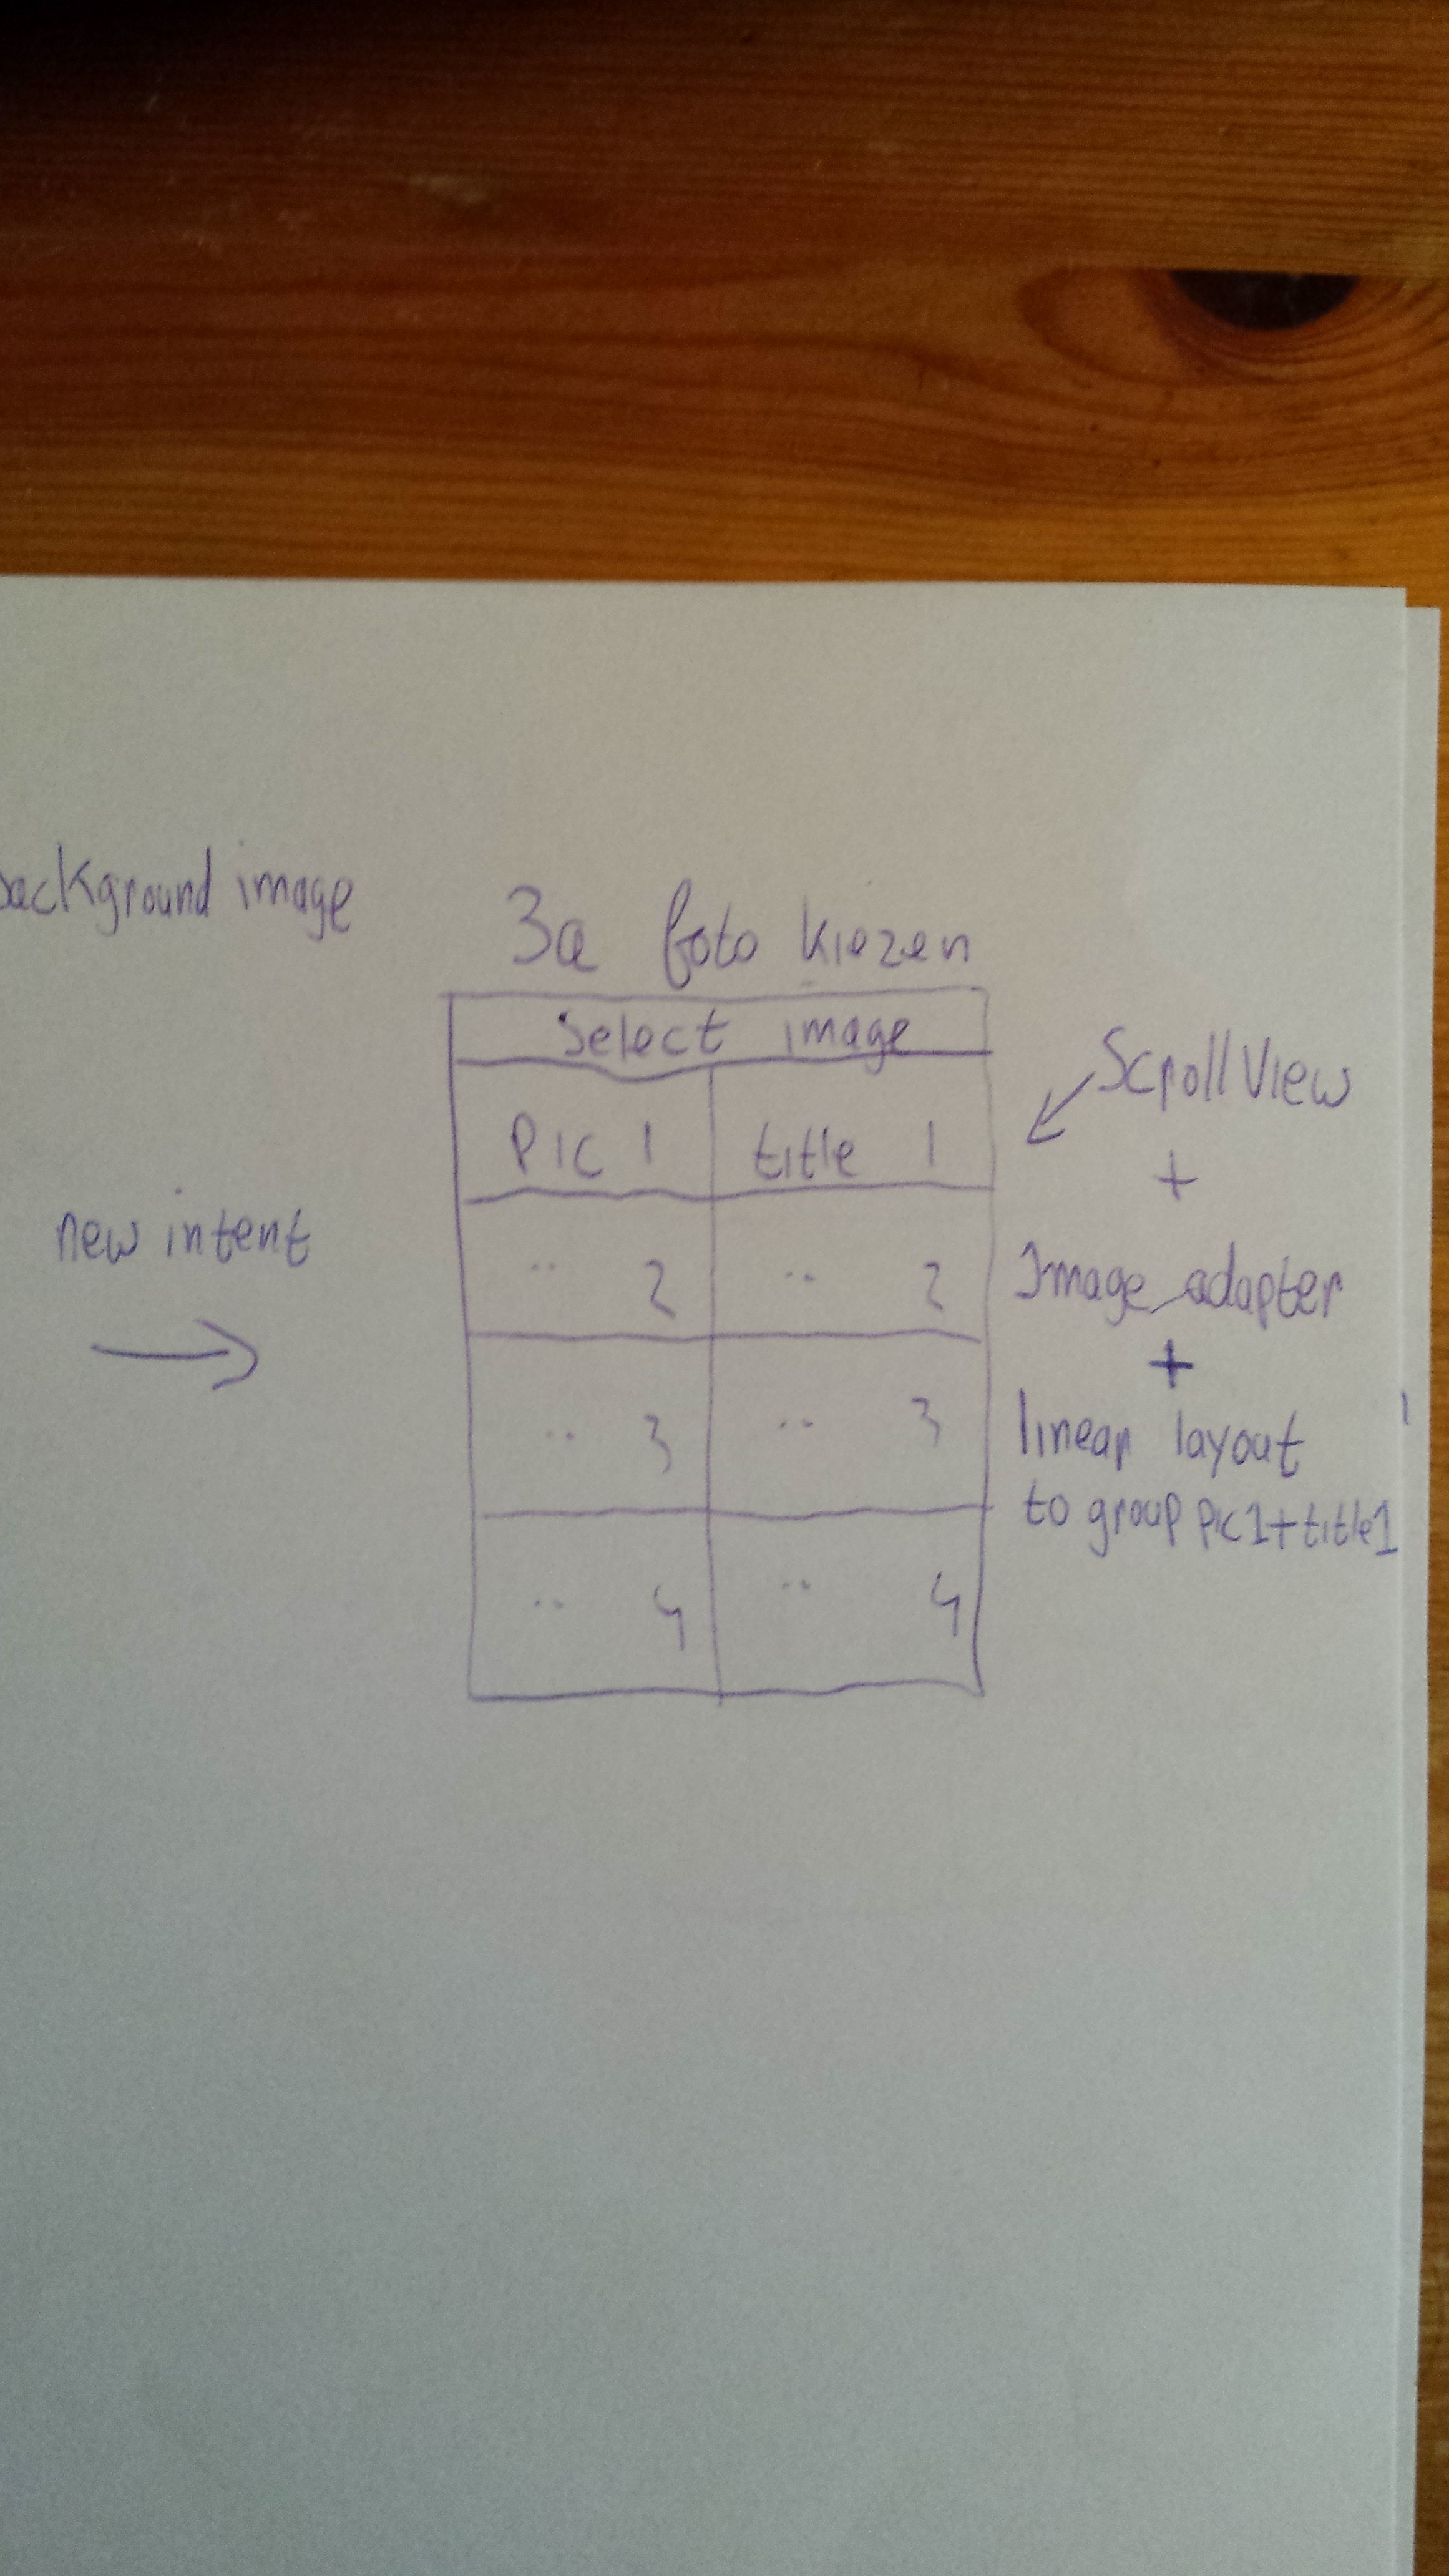 background image
3a foto kiezen
Select image
Pic 1 title 1
.. 2 .. 2
.. 3 .. 3
.. 4 .. 4
new intent
ScrollView
+
Image adapter
+
linear layout
to group pic1+title1